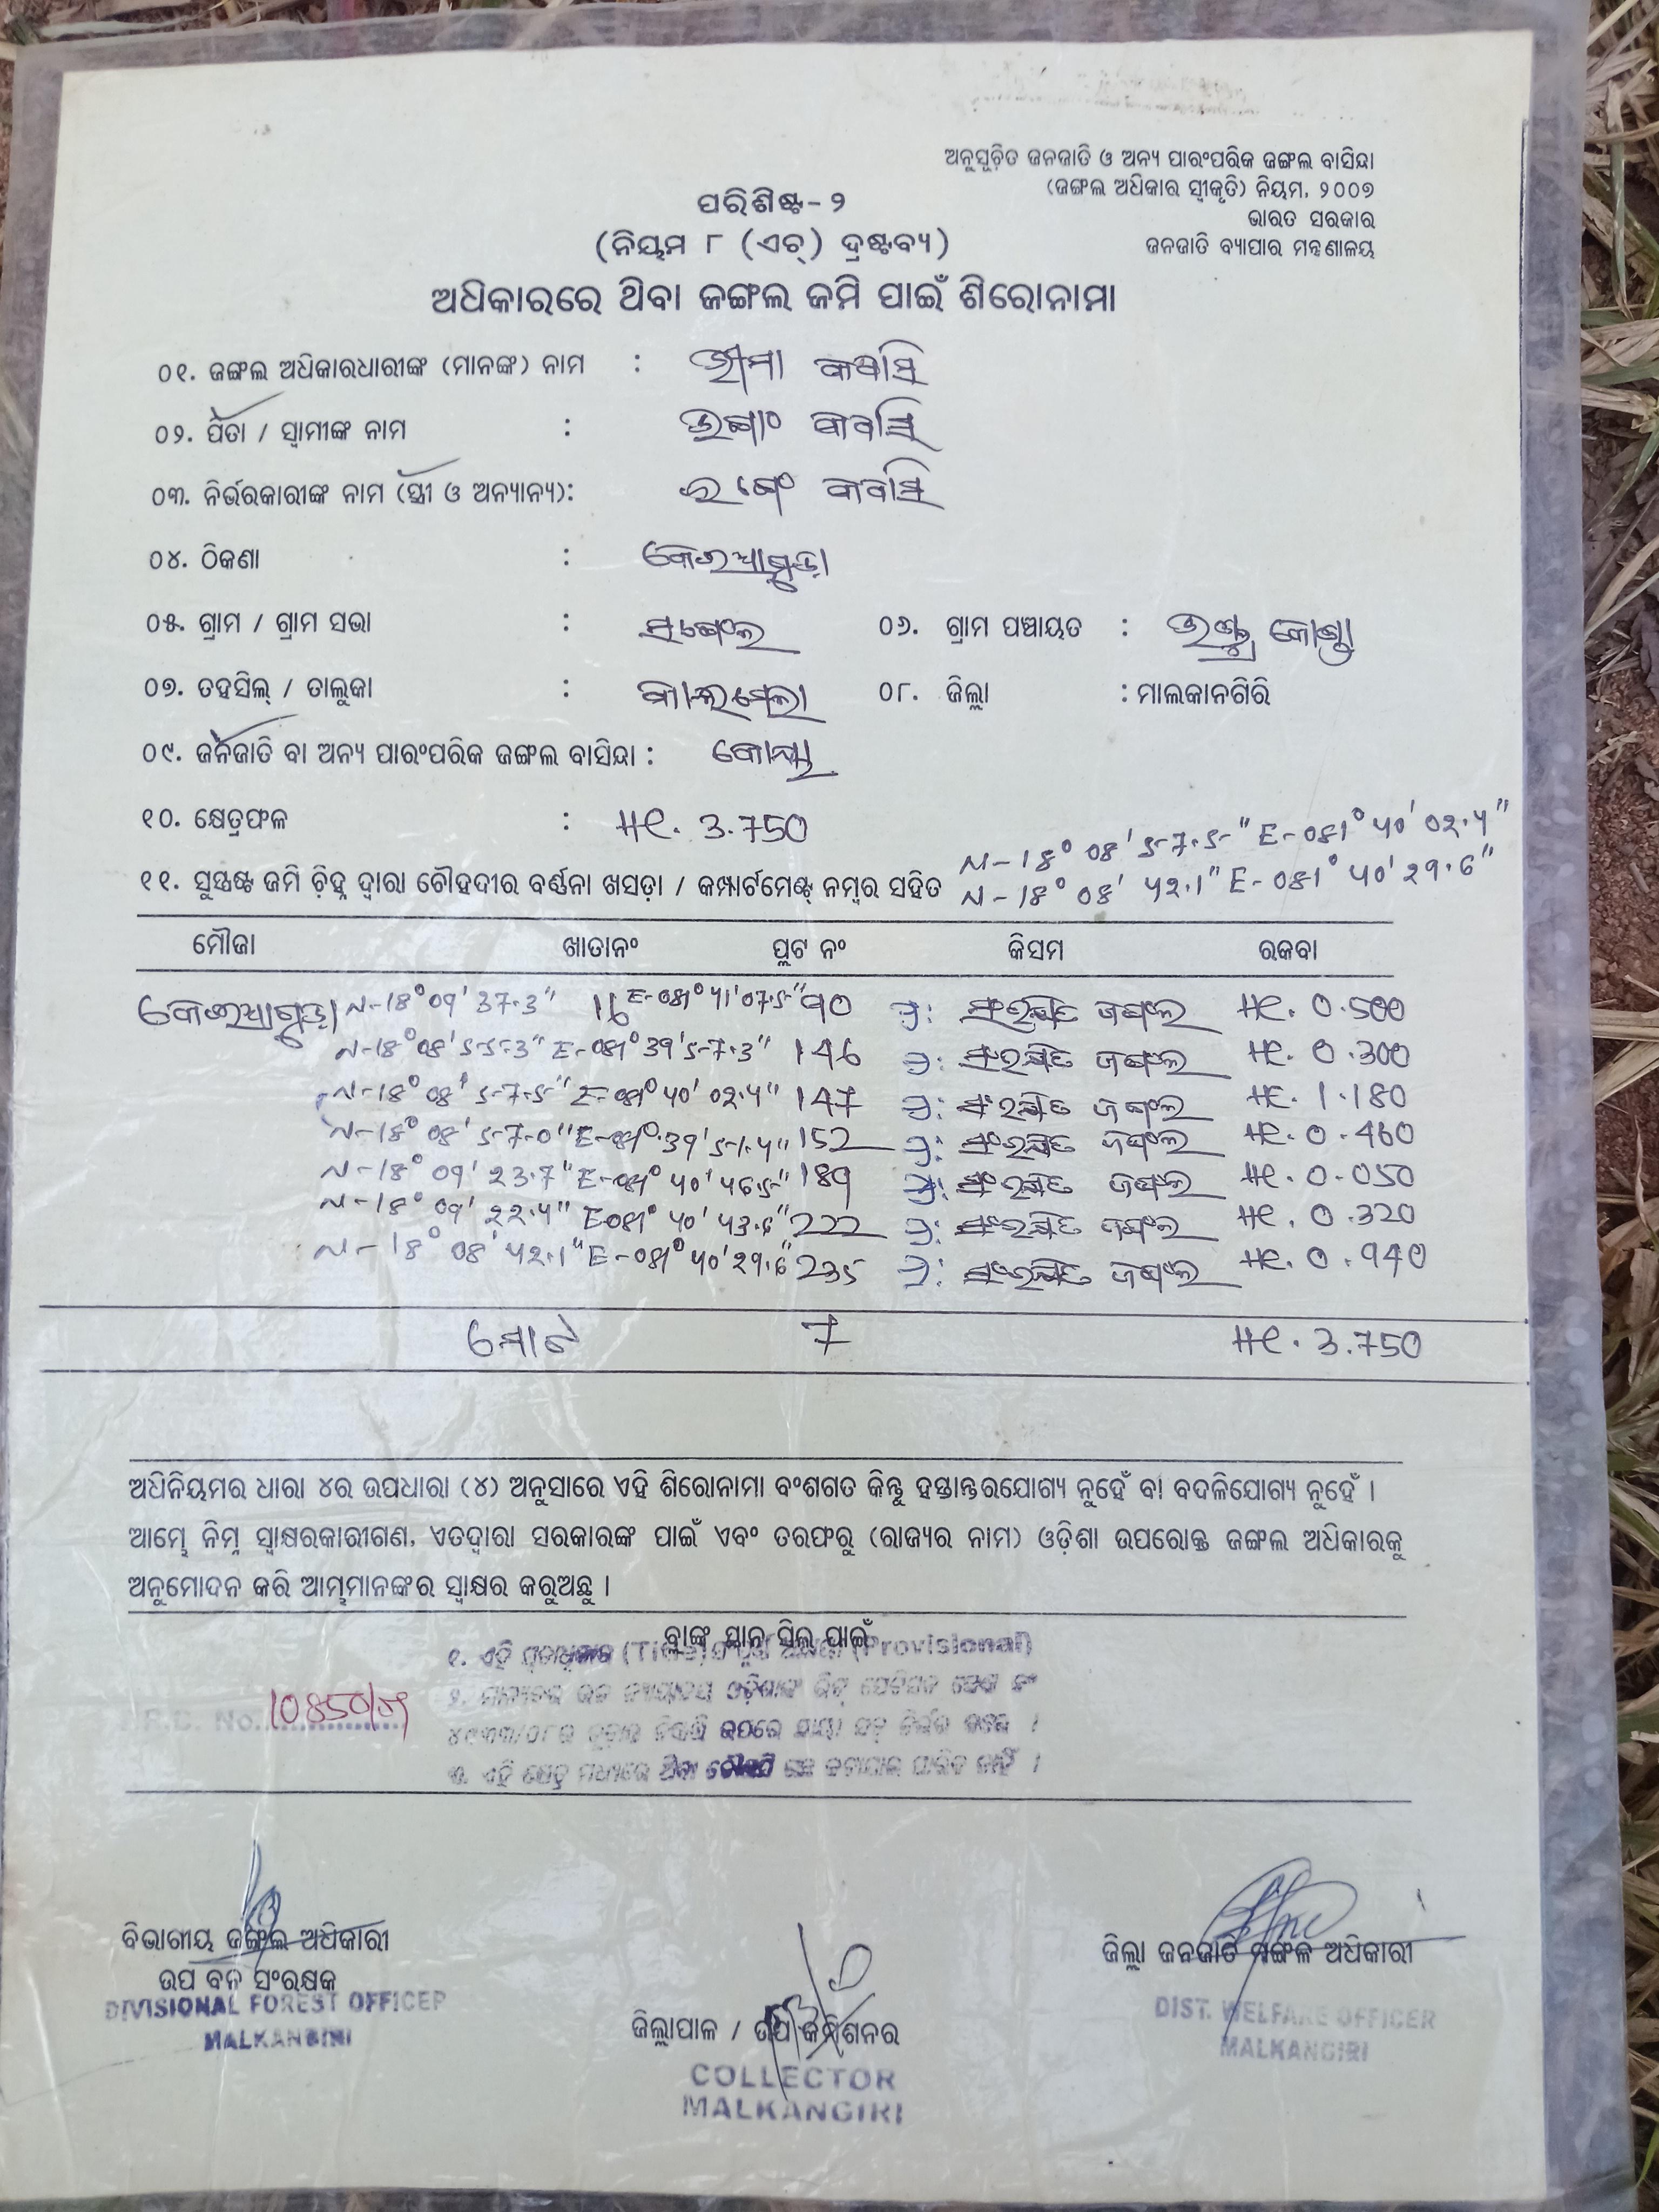 ଅନୁସୂଚିତ ଜନଜାତି ଓ ଅନ୍ୟ ପାରଂପରିକ ଜଙ୍ଗଲ ବାସିନ୍ଦା
(ଜଙ୍ଗଲ ଅଧିକାର ସ୍ୱୀକୃତି) ନିୟମ, ୨୦୦୭
ଭାରତ ସରକାର
ଜନଜାତି ବ୍ୟାପାର ମନ୍ତ୍ରଣାଳୟ
ପରିଶିଷ୍ଟ-୨
(ନିୟମ ୮ (ଏଚ୍) ଦ୍ରଷ୍ଟବ୍ୟ)
ଅଧିକାରରେ ଥିବା ଜଙ୍ଗଲ ଜମି ପାଇଁ ଶିରୋନାମା
୦୧. ଜଙ୍ଗଲ ଅଧିକାରଧାରୀଙ୍କ (ମାନଙ୍କ) ନାମ : ଭୀମା କବାସି
୦୨. ପିତା / ସ୍ୱାମୀଙ୍କ ନାମ : କବାସି
୦୩. ନିର୍ଭରକାରୀଙ୍କ ନାମ (ସ୍ତ୍ରୀ ଓ ଅନ୍ୟାନ୍ୟ): କବାସି
୦୪. ଠିକଣା :
୦୫. ଗ୍ରାମ / ଗ୍ରାମ ସଭା : ୦୬. ଗ୍ରାମ ପଞ୍ଚାୟତ :
୦୭. ତହସିଲ୍ / ତାଲୁକା : କାଲିମେଲା ୦୮. ଜିଲ୍ଲା : ମାଲକାନଗିରି
୦୯. ଜନଜାତି ବା ଅନ୍ୟ ପାରଂପରିକ ଜଙ୍ଗଲ ବାସିନ୍ଦା : କୋୟା
୧୦. କ୍ଷେତ୍ରଫଳ : He. 3.750
N-18° 08' 57.5" E-081° 40' 02.4"
୧୧. ସୁସ୍ପଷ୍ଟ ଜମି ଚିହ୍ନ ଦ୍ୱାରା ଚୌହଦୀର ବର୍ଣ୍ଣନା ଖସଡ଼ା / କମ୍ପାର୍ଟମେଣ୍ଟ୍ ନମ୍ବର ସହିତ N-18° 08' 42.1" E-081° 40' 29.6"
ମୌଜା ଖାତାନଂ ପ୍ଲଟ ନଂ କିସମ ରକବା
N-18° 09' 37.3" 16 E-081° 41' 07.5" 90 ସଂରକ୍ଷିତ ଜଙ୍ଗଲ He. 0.500
N-18° 08' 55.3" E-081° 39' 57.3" 146 ସଂରକ୍ଷିତ ଜଙ୍ଗଲ He. 0.300
N-18° 08' 57.5" E-081° 40' 02.4" 147 ସଂରକ୍ଷିତ ଜଙ୍ଗଲ He. 1.180
N-18° 08' 57.0" E-081° 39' 51.4" 152 ସଂରକ୍ଷିତ ଜଙ୍ଗଲ He. 0.460
N-18° 09' 23.7" E-081° 40' 46.5" 189 ସଂରକ୍ଷିତ ଜଙ୍ଗଲ He. 0.050
N-18° 09' 22.4" E-081° 40' 43.6" 222 ସଂରକ୍ଷିତ ଜଙ୍ଗଲ He. 0.320
N-18° 08' 42.1" E-081° 40' 29.6" 235 ସଂରକ୍ଷିତ ଜଙ୍ଗଲ He. 0.940
ମୋଟ 7 He. 3.750
ଅଧିନିୟମର ଧାରା ୪ର ଉପଧାରା (୪) ଅନୁସାରେ ଏହି ଶିରୋନାମା ବଂଶଗତ କିନ୍ତୁ ହସ୍ତାନ୍ତରଯୋଗ୍ୟ ନୁହେଁ ବା ବଦଳିଯୋଗ୍ୟ ନୁହେଁ ।
ଆମ୍ଭେ ନିମ୍ନ ସ୍ୱାକ୍ଷରକାରୀଗଣ, ଏତଦ୍ୱାରା ସରକାରଙ୍କ ପାଇଁ ଏବଂ ତରଫରୁ (ରାଜ୍ୟର ନାମ) ଓଡ଼ିଶା ଉପରୋକ୍ତ ଜଙ୍ଗଲ ଅଧିକାରକୁ
ଅନୁମୋଦନ କରି ଆମ୍ଭମାନଙ୍କର ସ୍ୱାକ୍ଷର କରୁଅଛୁ ।
ବ୍ଲାଙ୍କ ସ୍ଥାନ ସିଲ ପାଇଁ
୧. ଏହି (Title) (Provisional)
10850/09
ବିଭାଗୀୟ ଜଙ୍ଗଲ ଅଧିକାରୀ
ଉପ ବନ ସଂରକ୍ଷକ
DIVISIONAL FOREST OFFICER
MALKANGIRI
ଜିଲ୍ଲାପାଳ / ଉପ କମିଶନର
COLLECTOR
MALKANGIRI
ଜିଲ୍ଲା ଜନଜାତି ମଙ୍ଗଳ ଅଧିକାରୀ
DIST. WELFARE OFFICER
MALKANGIRI